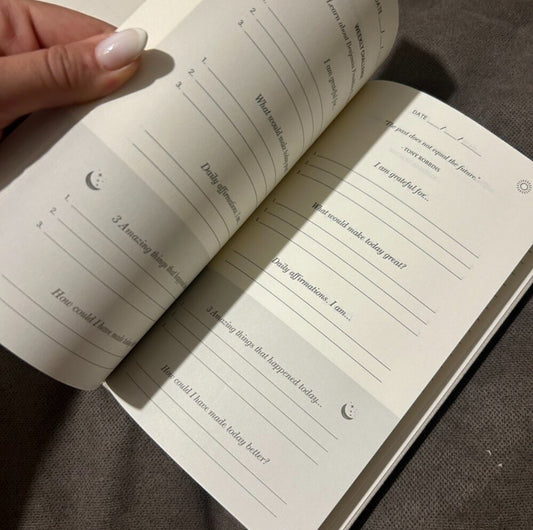 DATE
WEEKLY
Learn about Benjamin
I am grateful
1.
2.
3.
What would make
1.
2.
3.
Daily affirmations.
3 Amazing things that
1.
2.
3.
How could I have made
DATE / /
"The past does not equal the future."
-TONY ROBBINS
I am grateful for...
What would make today great?
Daily affirmations. I am...
3 Amazing things that happened today...
How could I have made today better?